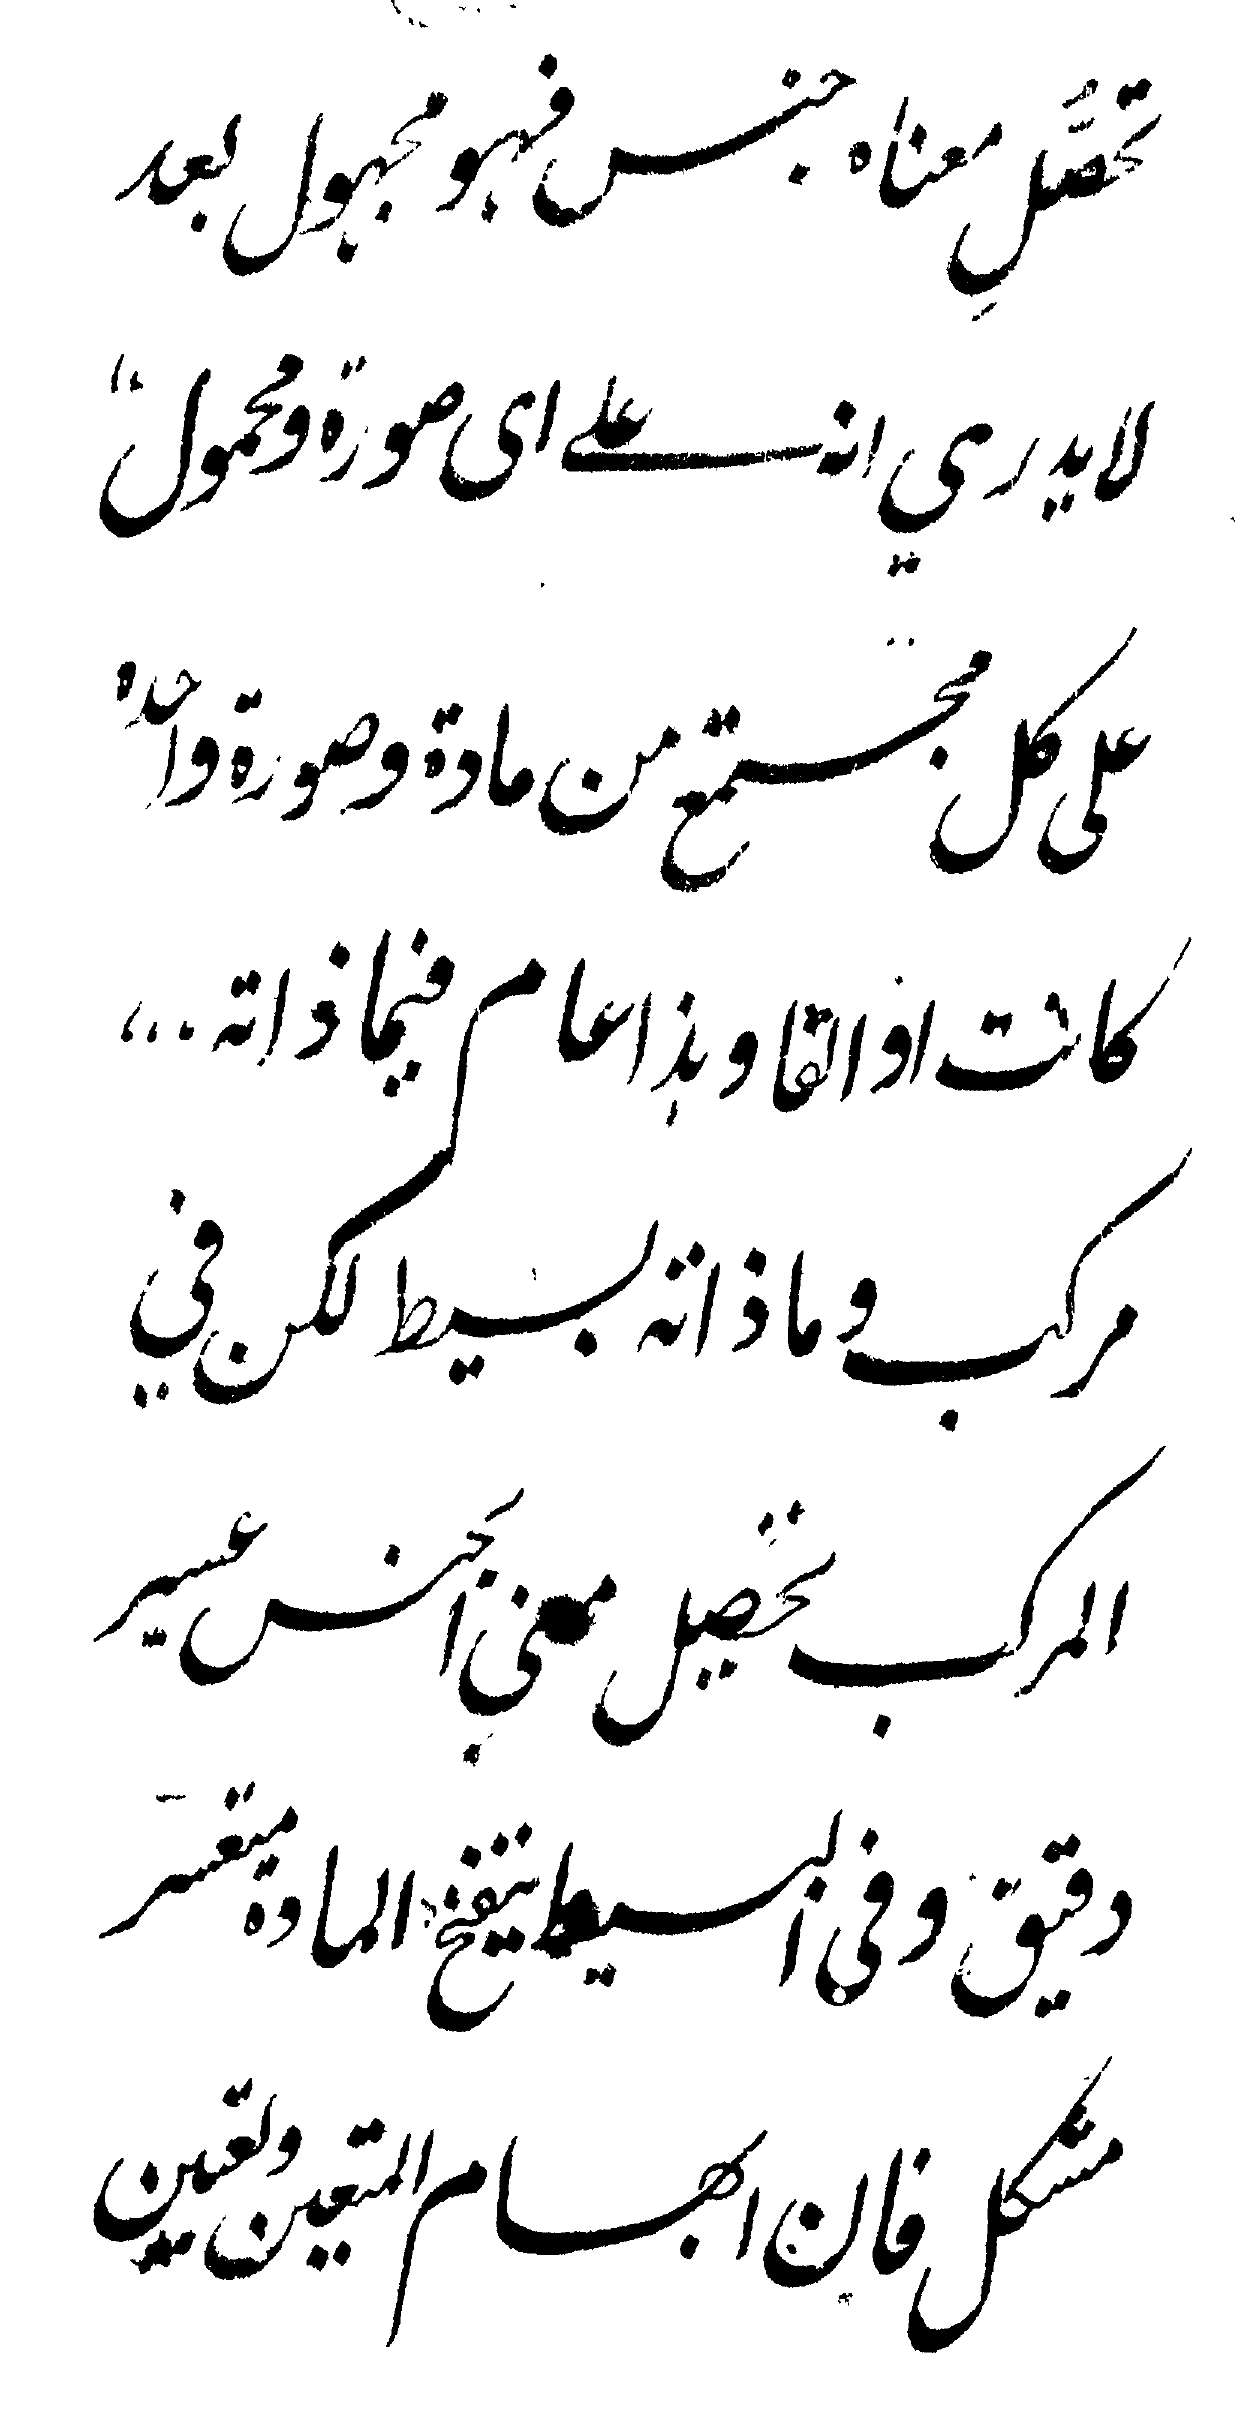 تحصّل معناه جنس فهو مجهول بعد
لا يدري انه على اى صورة ومحمول
على كل مجتمع من مادة وصورة واحدة
كانت او الفا وهذا عام فيما ذاته
مركب وما ذاته بسيط لكن في
المركب تحصيل معنى الجنس عسير
دقيق وفى البسيط تنقيح المادة متعسر
مشكل فان ابهام المتعين وتعيين